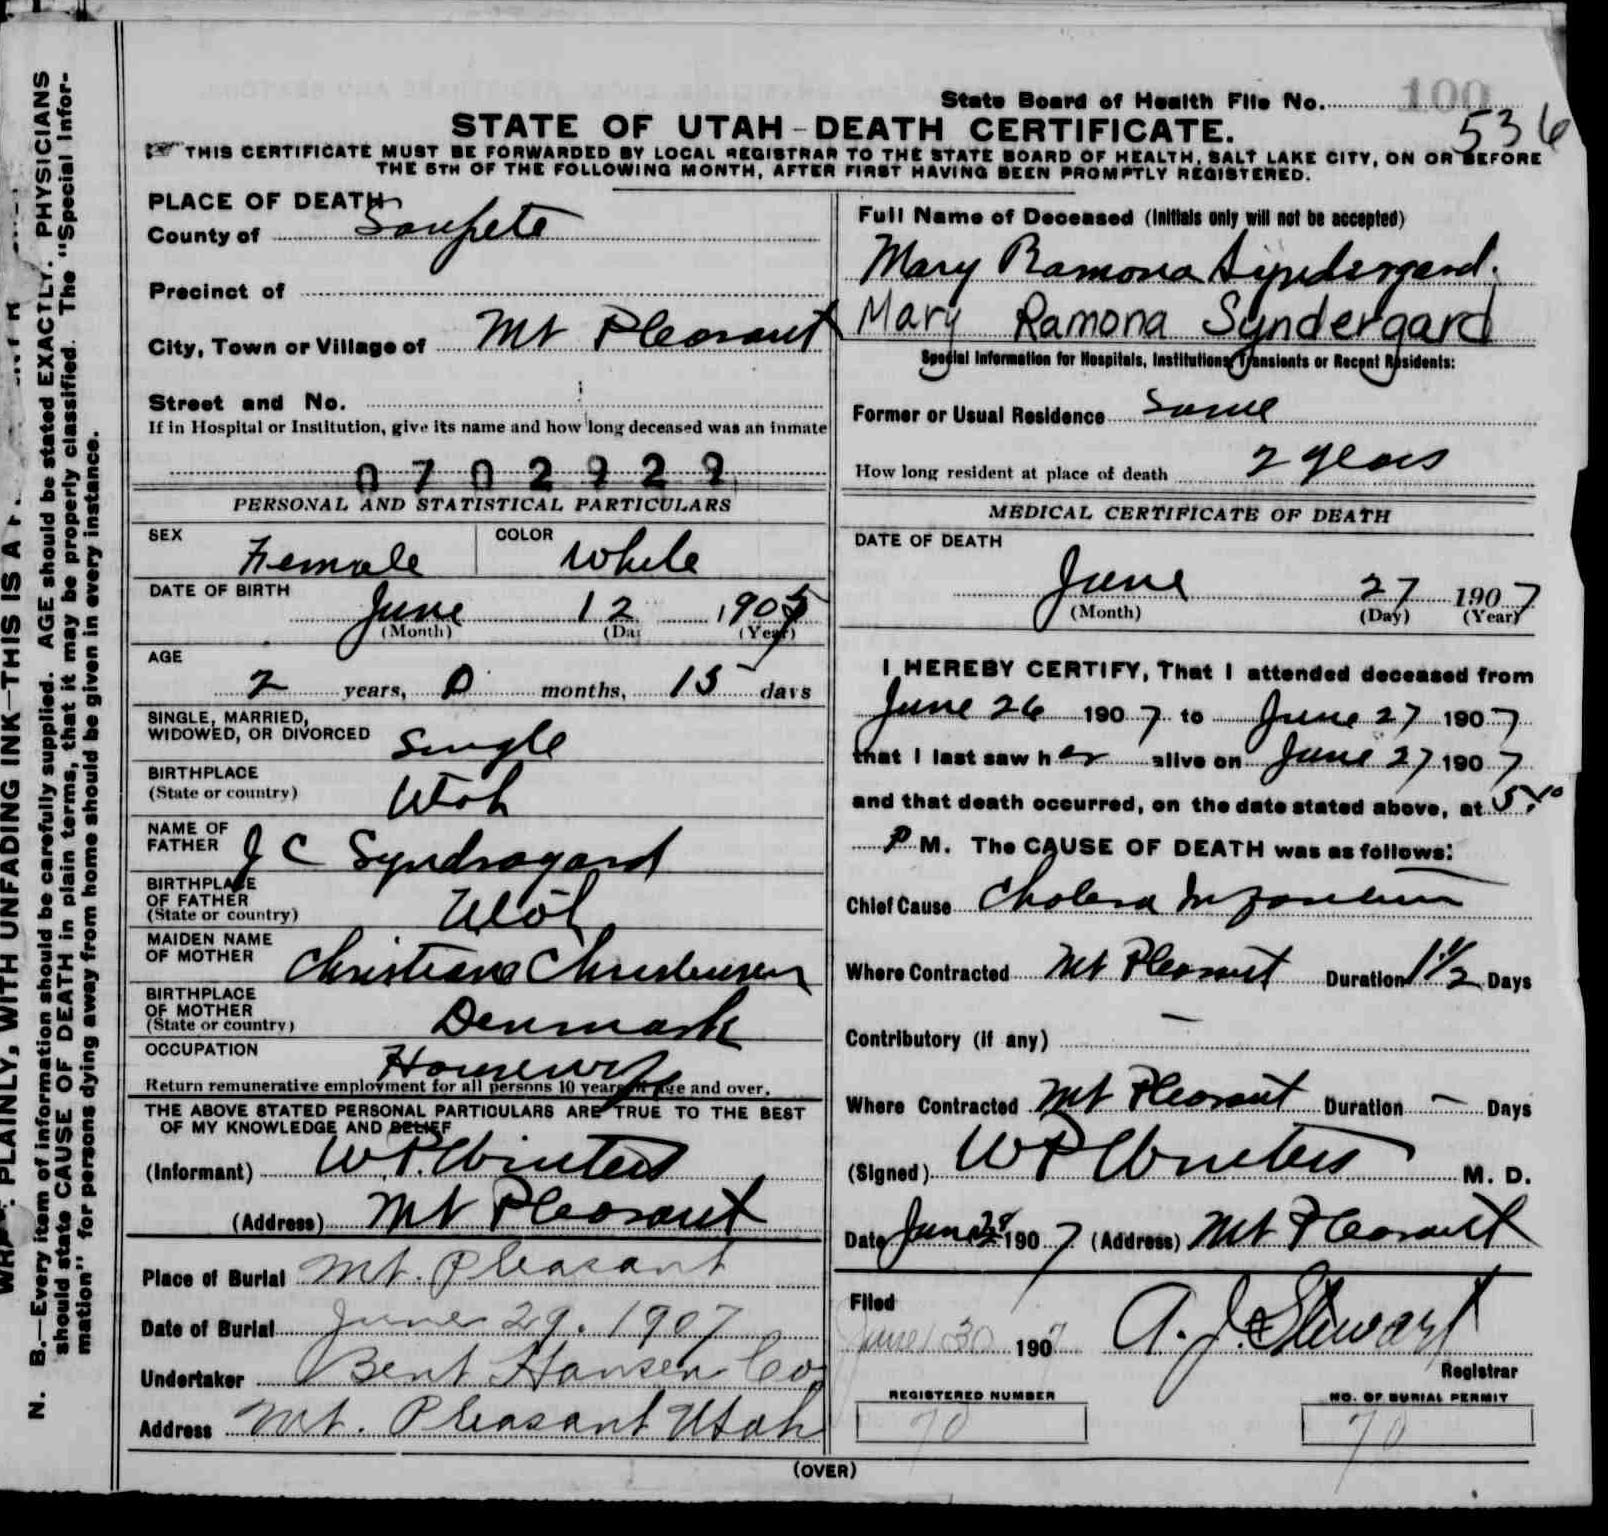 State Board of Health File No. 100
536
STATE OF UTAH - DEATH CERTIFICATE.
THIS CERTIFICATE MUST BE FORWARDED BY LOCAL REGISTRAR TO THE STATE BOARD OF HEALTH, SALT LAKE CITY, ON OR BEFORE
THE 5TH OF THE FOLLOWING MONTH, AFTER FIRST HAVING BEEN PROMPTLY REGISTERED.
PLACE OF DEATH
County of Sanpete
Precinct of
City, Town or Village of Mt Pleasant
Street and No.
If in Hospital or Institution, give its name and how long deceased was an inmate
0702929
PERSONAL AND STATISTICAL PARTICULARS
SEX Female COLOR White
DATE OF BIRTH
June 12 1905
(Month) (Day) (Year)
AGE
2 years, 0 months, 15 days
SINGLE, MARRIED,
WIDOWED, OR DIVORCED Single
BIRTHPLACE
(State or country) Utah
NAME OF
FATHER J C Syndragard
BIRTHPLACE
OF FATHER
(State or country) Utah
MAIDEN NAME
OF MOTHER Christiana Christensen
BIRTHPLACE
OF MOTHER
(State or country) Denmark
OCCUPATION Housewife
Return remunerative employment for all persons 10 years of age and over.
THE ABOVE STATED PERSONAL PARTICULARS ARE TRUE TO THE BEST
OF MY KNOWLEDGE AND BELIEF
(Informant) W P. Winters
(Address) Mt Pleasant
Place of Burial Mt. Pleasant
Date of Burial June 29. 1907
Undertaker Bent Hansen Co
Address Mt. Pleasant Utah
Full Name of Deceased (Initials only will not be accepted)
Mary Ramona Syndergard.
Mary Ramona Syndergard
Special Information for Hospitals, Institutions, Transients or Recent Residents:
Former or Usual Residence Same
How long resident at place of death 2 years
MEDICAL CERTIFICATE OF DEATH
DATE OF DEATH
June 27 1907
(Month) (Day) (Year)
I HEREBY CERTIFY, That I attended deceased from
June 26 1907 to June 27 1907
that I last saw her alive on June 27 1907
and that death occurred, on the date stated above, at
P M. The CAUSE OF DEATH was as follows:
Chief Cause Cholera Infantum
Where Contracted Mt Pleasant Duration 1 1/2 Days
Contributory (if any) —
Where Contracted Mt Pleasant Duration — Days
(Signed) W P Winters M. D.
Date June 28 1907 (Address) Mt Pleasant
Filed
June 30 1907 A. J. Stewart
Registrar
REGISTERED NUMBER NO. OF BURIAL PERMIT
70 70
(OVER)
PLAINLY, WITH UNFADING INK—THIS IS A
N. B.—Every item of information should be carefully supplied. AGE should be stated EXACTLY. PHYSICIANS
should state CAUSE OF DEATH in plain terms, that it may be properly classified. The "Special Infor-
mation" for persons dying away from home should be given in every instance.